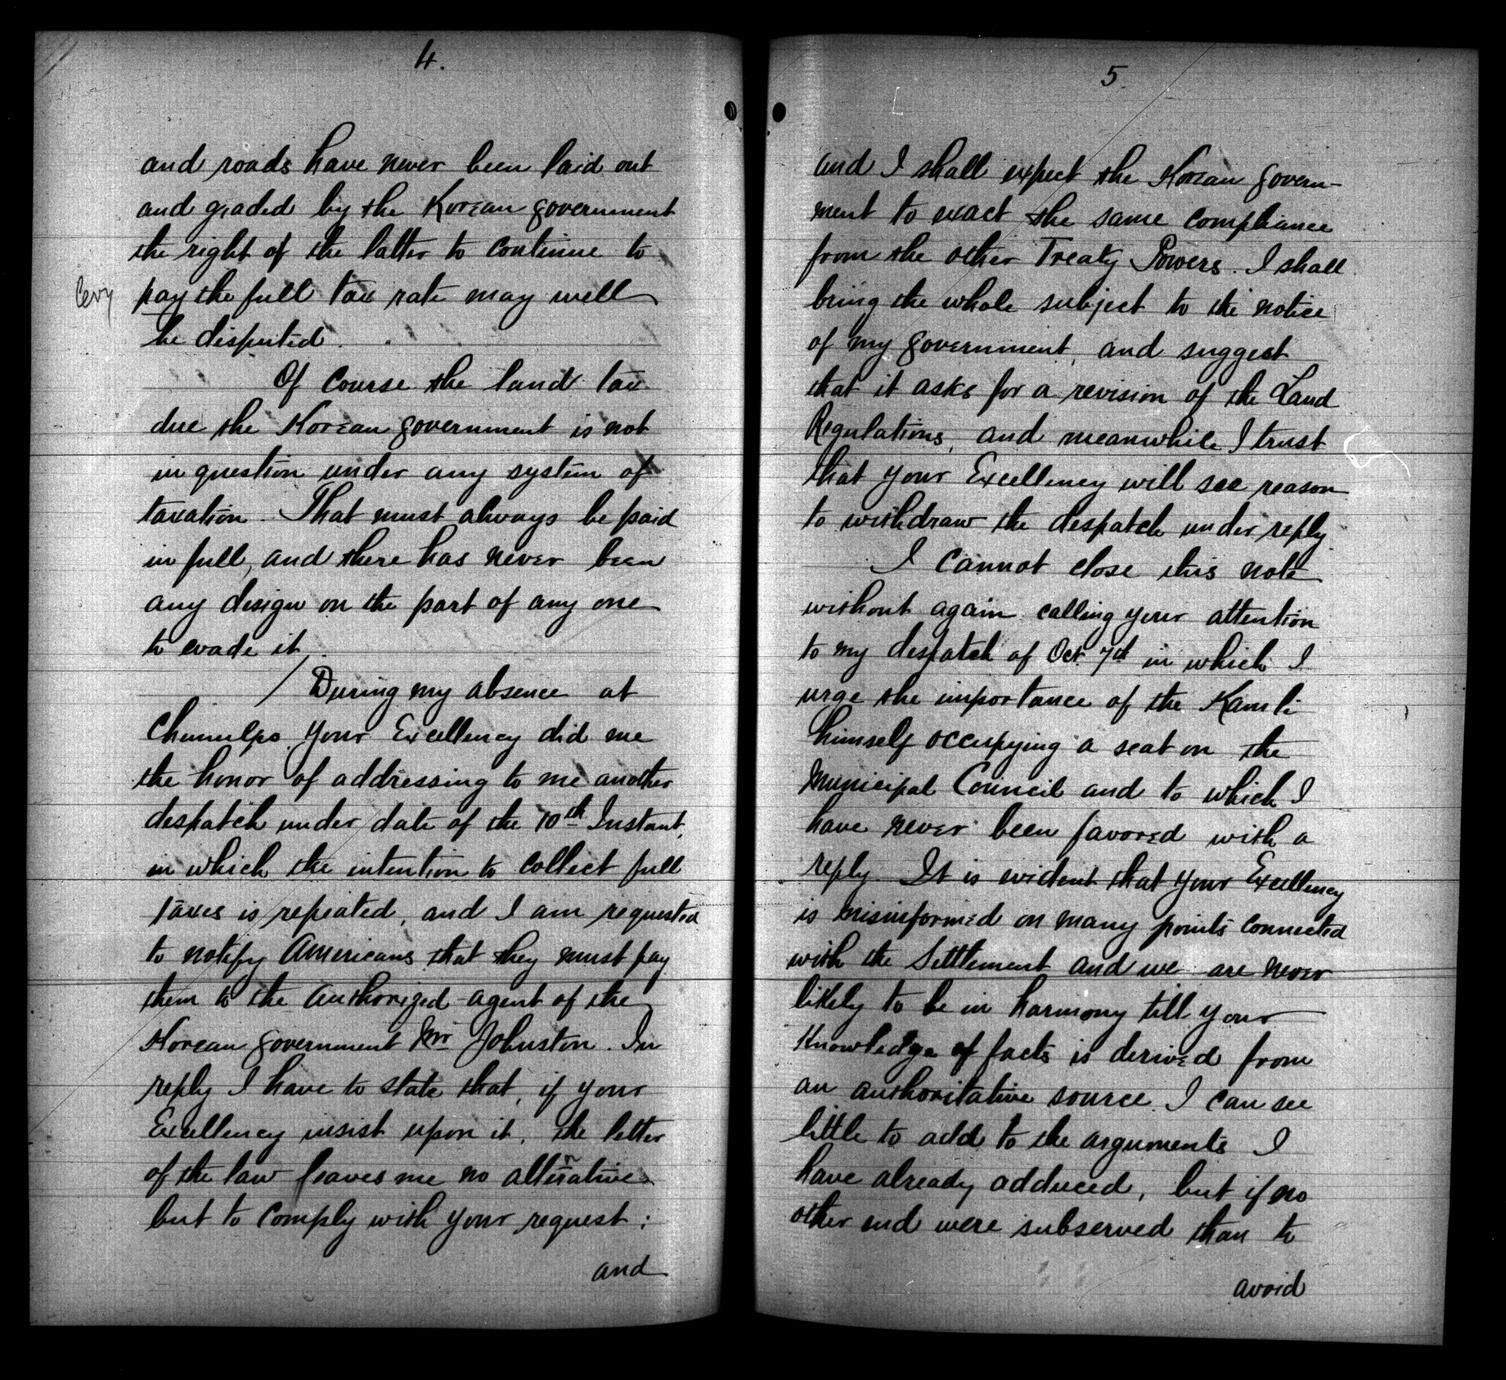 4.
and roads have never been laid out
and graded by the Korean government
the right of the latter to continue to
levy
pay the full tax rate may well
be disputed.
Of course the land tax
due the Korean government is not
in question under any system of
taxation. That must always be paid
in full, and there has never been
any design on the part of any one
to evade it.
During my absence at
Chemulpo Your Excellency did me
the honor of addressing to me another
despatch under date of the 10th Instant,
in which the intention to collect full
taxes is repeated, and I am requested
to notify Americans that they must pay
them to the authorized agent of the
Korean government Mr Johnston. In
reply I have to state that, if your
Excellency insist upon it, the letter
of the law leaves me no alternative
but to comply with your request;
and
5.
and I shall expect the Korean govern-
ment to exact the same compliance
from the other Treaty Powers. I shall
bring the whole subject to the notice
of my government, and suggest
that it asks for a revision of the Land
Regulations, and meanwhile I trust
that your Excellency will see reason
to withdraw the despatch under reply.
I cannot close this note
without again calling your attention
to my despatch of Oct. 7th in which I
urge the importance of the Kamli
himself occupying a seat on the
Municipal Council and to which I
have never been favored with a
reply. It is evident that your Excellency
is misinformed on many points connected
with the Settlement and we are never
likely to be in harmony till your
knowledge of facts is derived from
an authoritative source. I can see
little to add to the arguments I
have already adduced, but if no
other end were subserved than to
avoid